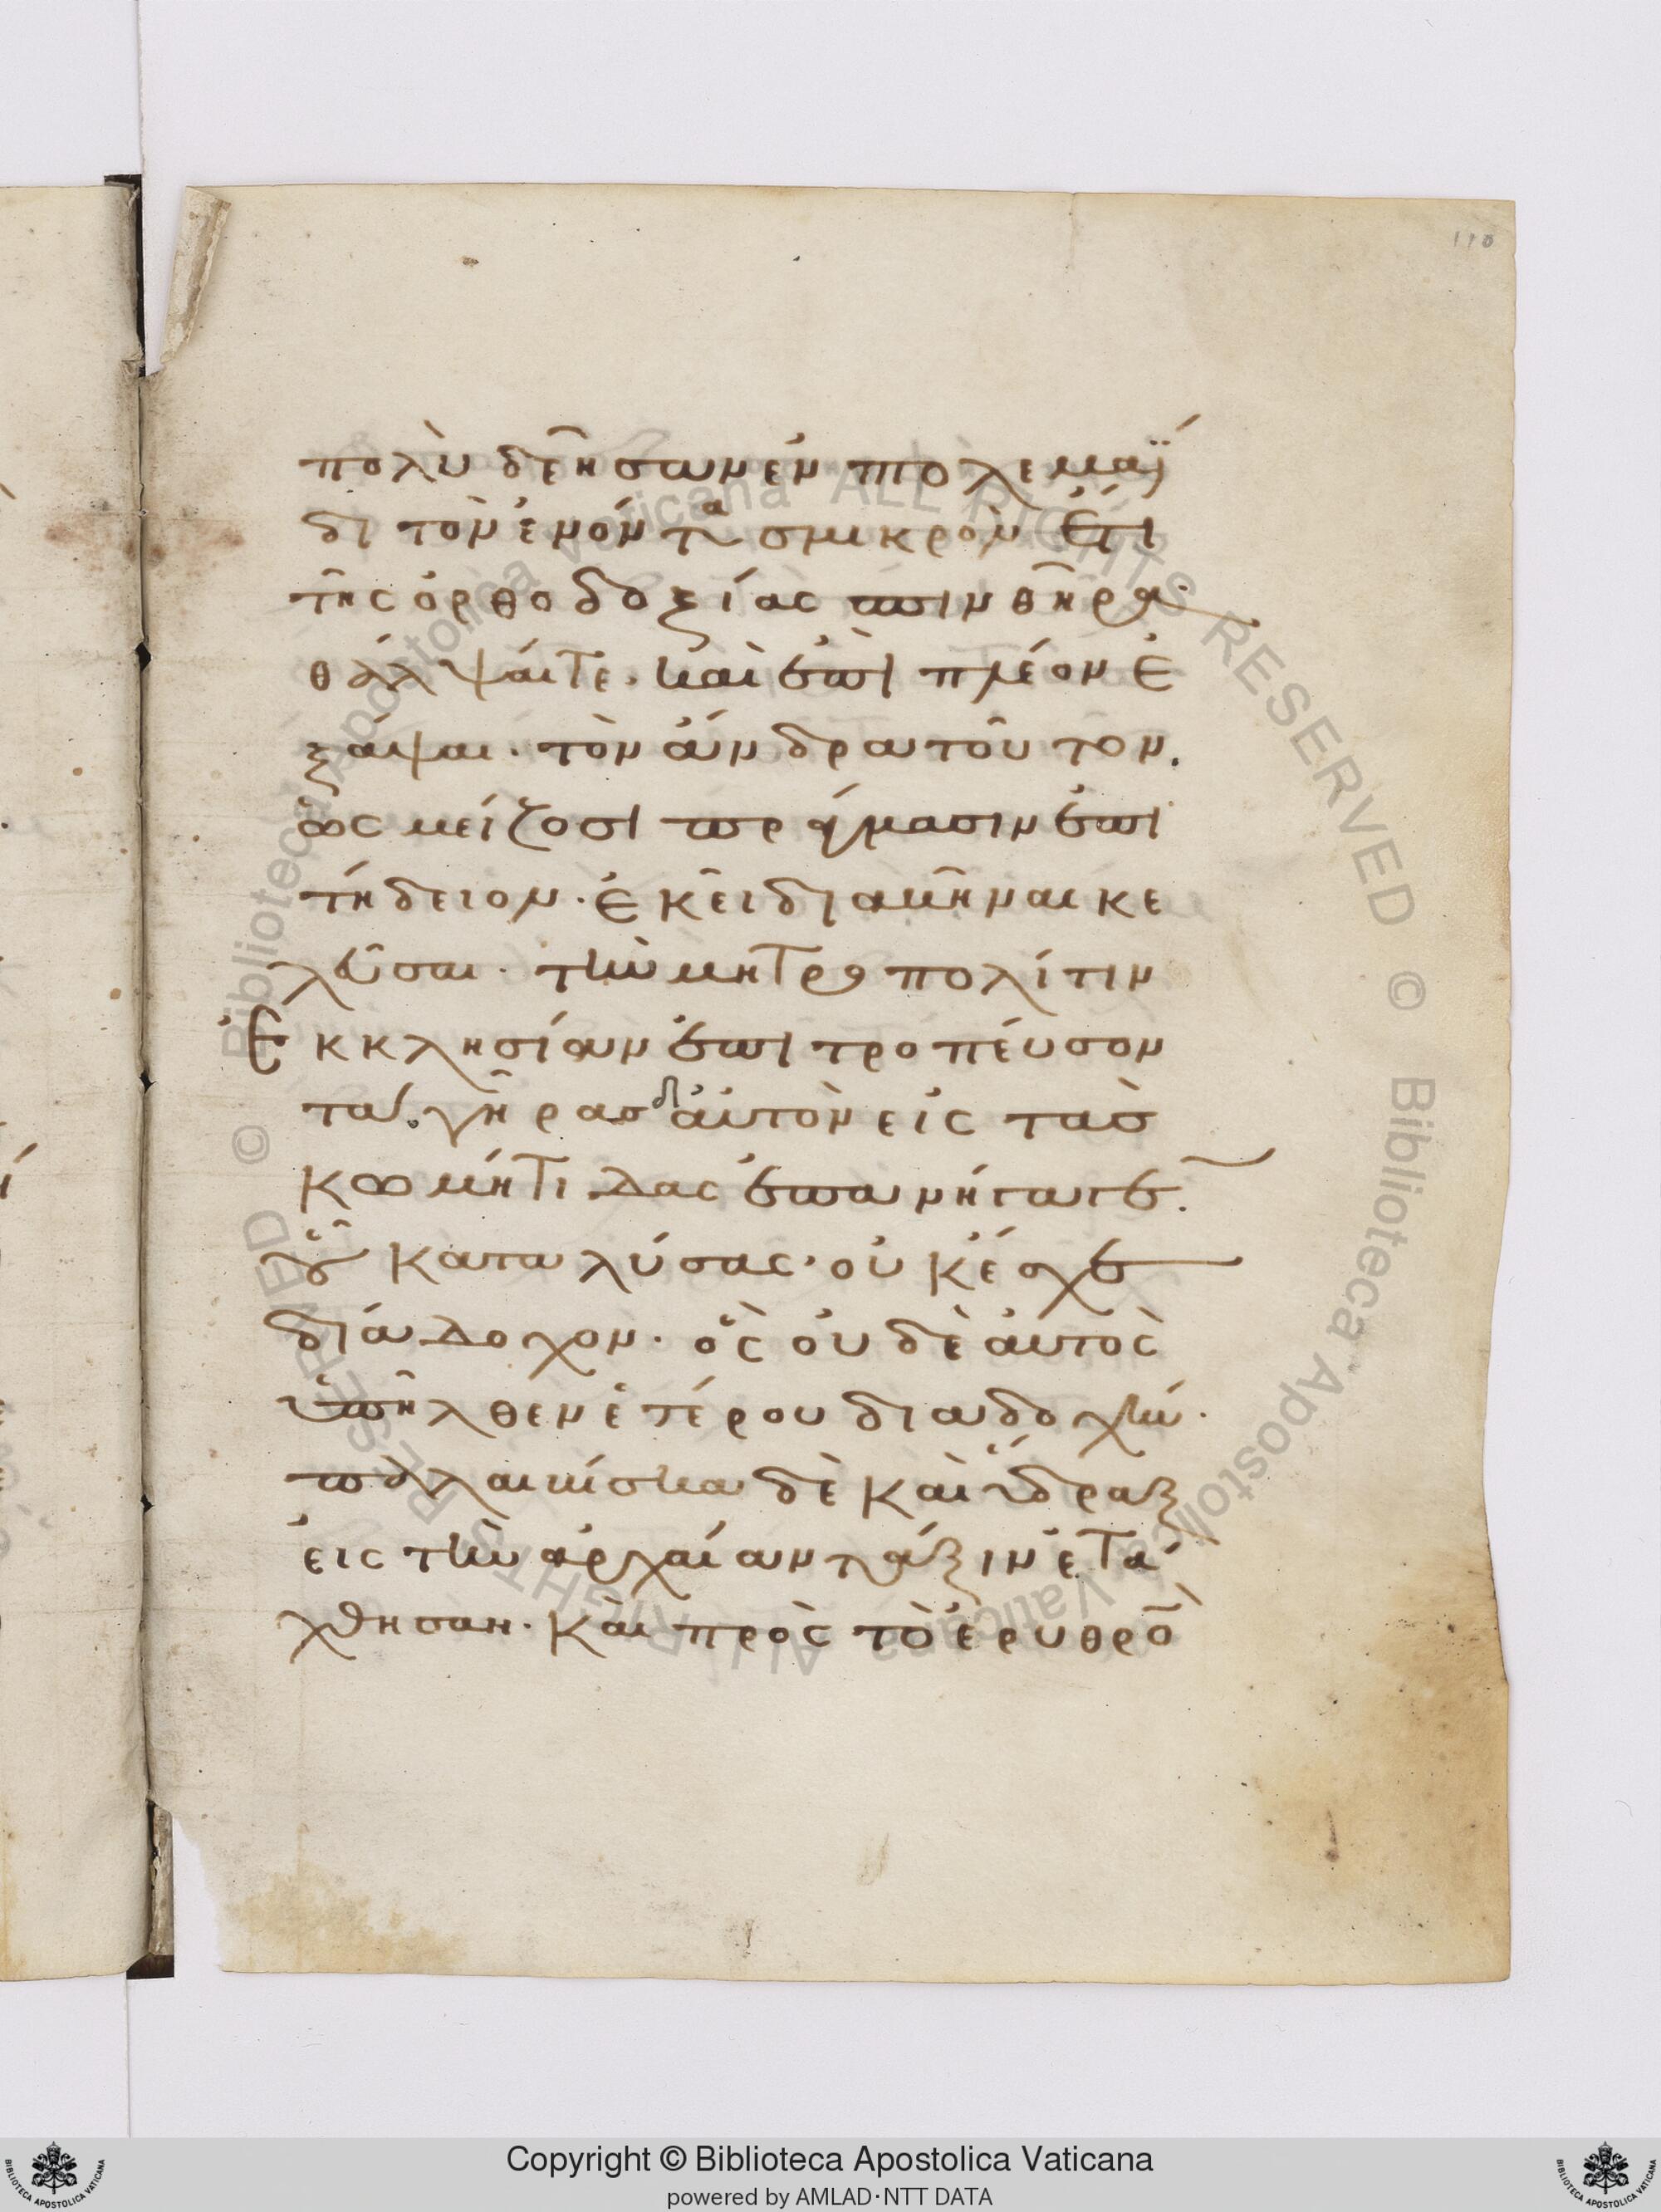 110
πολὺ δεῆσωμὲν πτολεμαΐ
δι τὸν ἐμόντα σμικρὸν ἔτι
τῆς ὀρθοδοξίας σπινθῆρα
θάλψαί τε. καὶ ἐπὶ πλέον ἐ
ξάψαι. τὸν ἄνδρα τοῦτον.
ὡς μείζοσι πράγμασιν ἐπι
τήδειον. ἐκεῖ διακῆναι κε
λεῦσαι. τὴν μητροπολίτιν
Ἐκκλησίαν ἐπιτροπεύσον
τα. γῆρας δι αὐτὸν εἰς τὰσ
κωμήτιδας ἐπανήγαγε.
οὗ καταλύσας. οὐκ ἔσχε
διάδοχον. ὃς οὐδὲ αὐτὸς
ὑπῆλθεν ἑτέρου διαδοχήν.
παλαιίσκα δὲ καὶ ὕδραξ
εἰς τὴν ἀρχαίαν τάξιν ἐτά
χθησαν. καὶ πρὸς τὸ ἐρυθρὸ
Copyright © Biblioteca Apostolica Vaticana
powered by AMLAD·NTT DATA